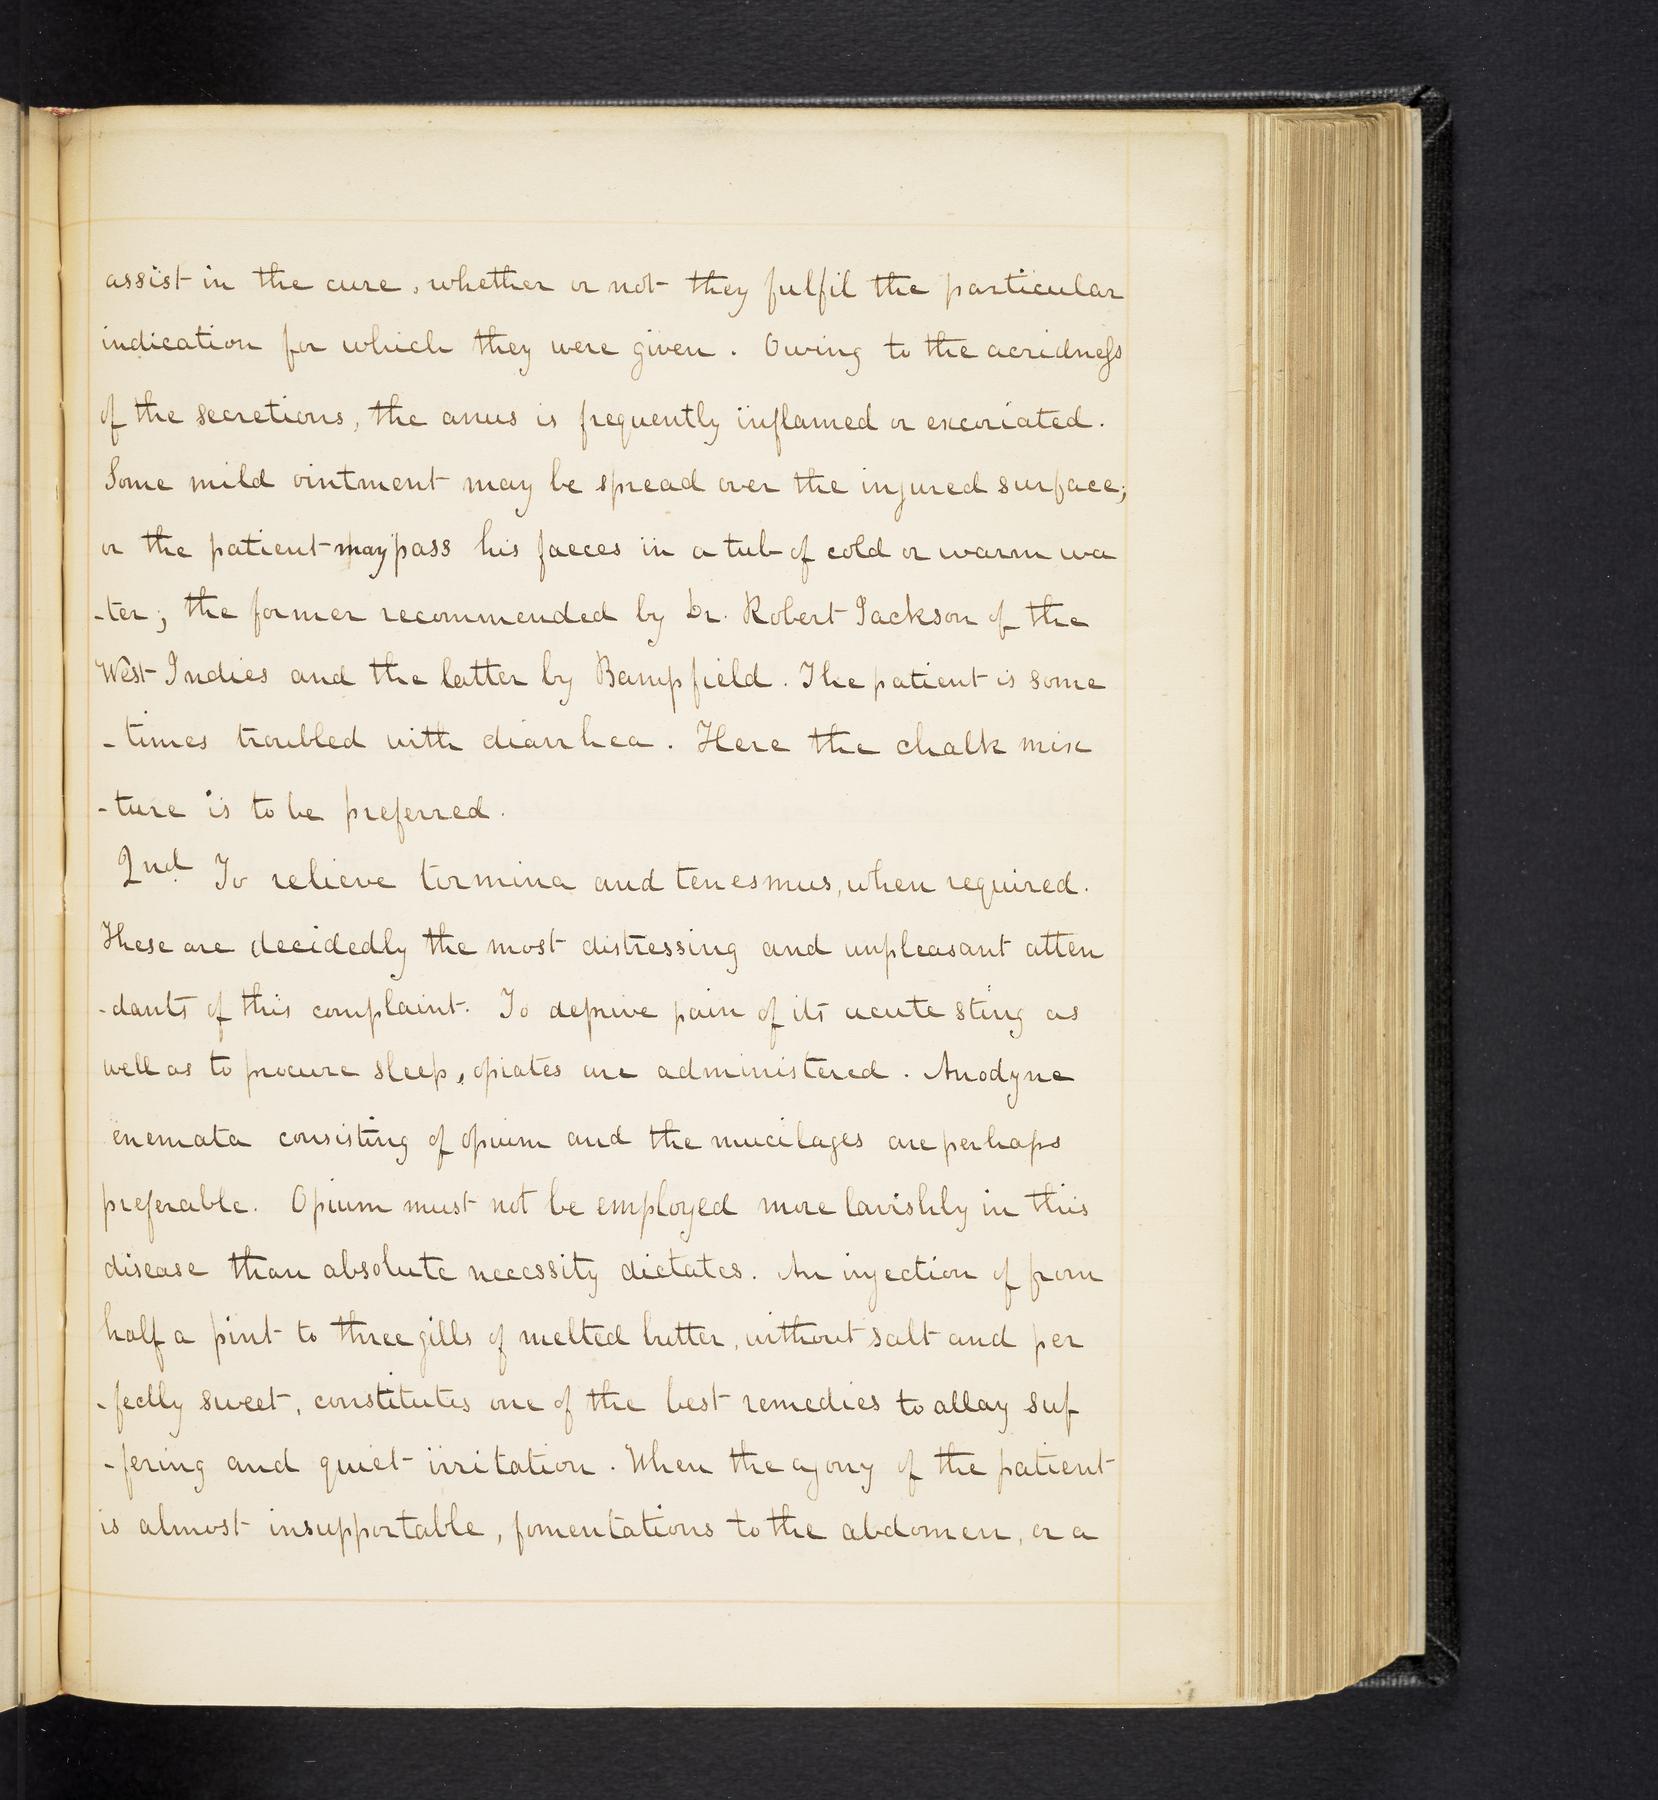 assist in the cure, whether or not they fulfil the particular
indication for which they were given. Owing to the acridness
of the secretions, the anus is frequently inflamed or excoriated.
Some mild ointment may be spread over the injured surface;
or the patient may pass his faeces in a tub of cold or warm wa
-ter; the former recommended by Dr. Robert Jackson of the
West Indies and the latter by Bampfield. The patient is some
-times troubled with diarrhea. Here the chalk mix
-ture is to be preferred.
2nd To relieve tormina and tenesmus, when required.
These are decidedly the most distressing and unpleasant atten
-dants of this complaint. To deprive pain of its acute sting as
well as to procure sleep, opiates are administered. Anodyne
enemata consisting of opium and the mucilages are perhaps
preferable. Opium must not be employed more lavishly in this
disease than absolute necessity dictates. An injection of from
half a pint to three gills of melted butter, without salt and per
-fectly sweet, constitutes one of the best remedies to allay suf
-fering and quiet irritation. When the agony of the patient
is almost insupportable, fomentations to the abdomen, or a